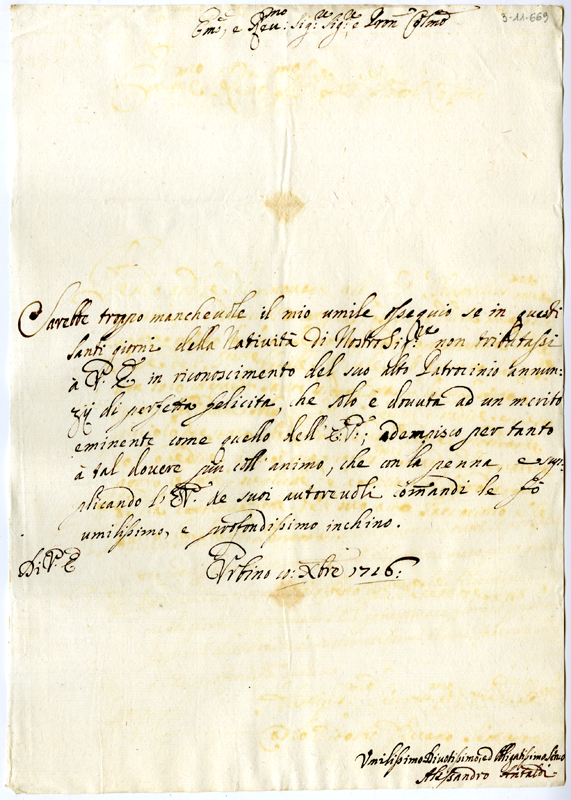 3-11-669
Em.o, e Reu.mo Sig.re Sig.re e Pron Colmo
Sarebbe troppo mancheuole il mio umile ossequio se in questi
Santi giorni della Natiuità di Nostro Sig.re non tributassi
à V. E. in riconoscimento del suo alto Patrocinio annun:
zij di perfetta felicita, che solo e douuta ad un merito
eminente come quello dell'E.V.; adempisco per tanto
à tal douere più coll'animo, che con la penna, e sup
plicando l'E.V. de suoi autoreuoli comandi le fò
umilissimo, e profondissimo inchino.
Di V. E. Vrbino Xbre 1716:
Vmilissimo Diuotissimo, ed Obligatissimo Seruo
Alessandro Antaldi